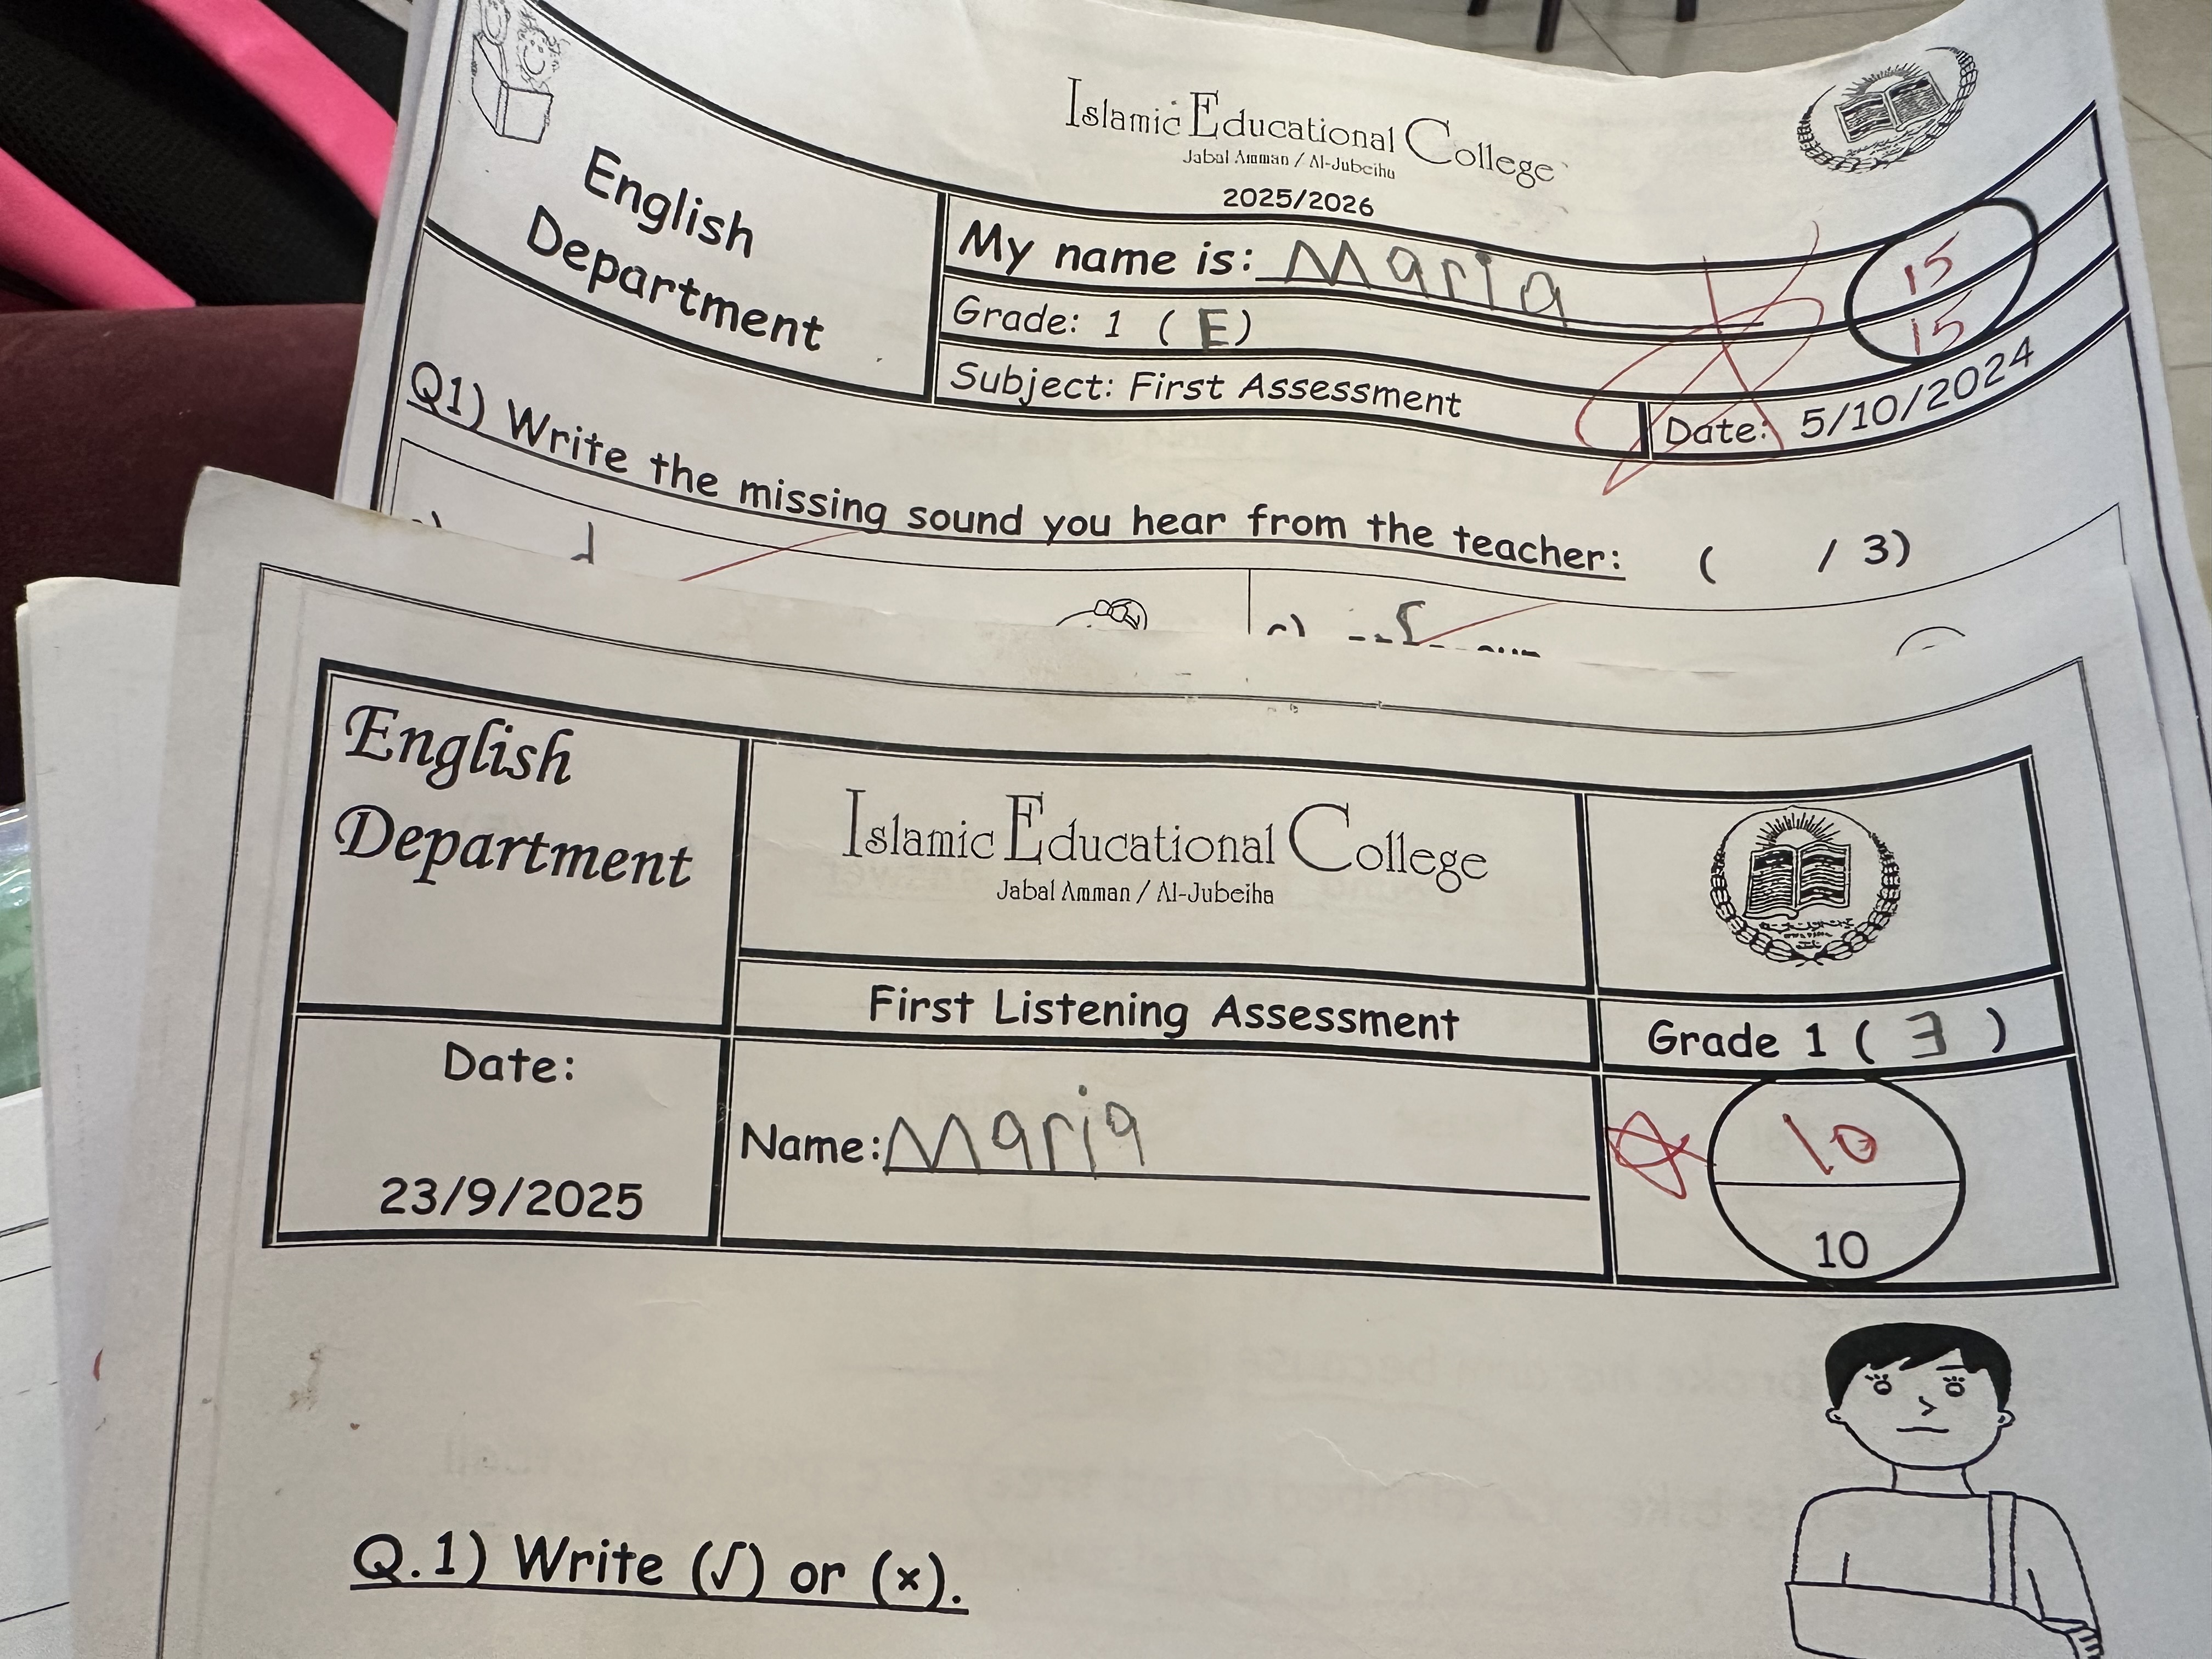 Islamic Educational College
Jabal Amman / Al-Jubeiha
2025/2026
English
Department
My name is: Maria
15
15
Grade: 1 ( E )
Subject: First Assessment
Date: 5/10/2024
Q1) Write the missing sound you hear from the teacher: ( / 3)
English
Department
Islamic Educational College
Jabal Amman / Al-Jubeiha
First Listening Assessment
Grade 1 ( Ǝ )
Date:
23/9/2025
Name: Maria
10
10
Q.1) Write (√) or (×).